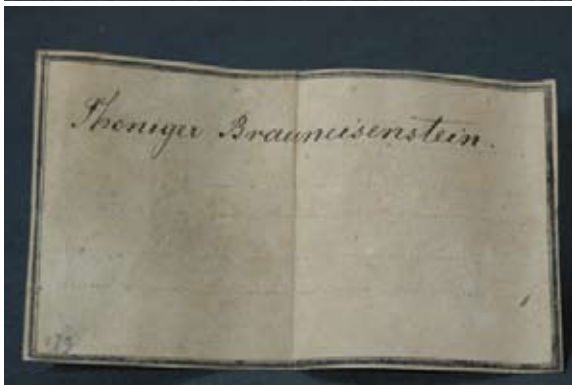 Thoniger Brauneisenstein.